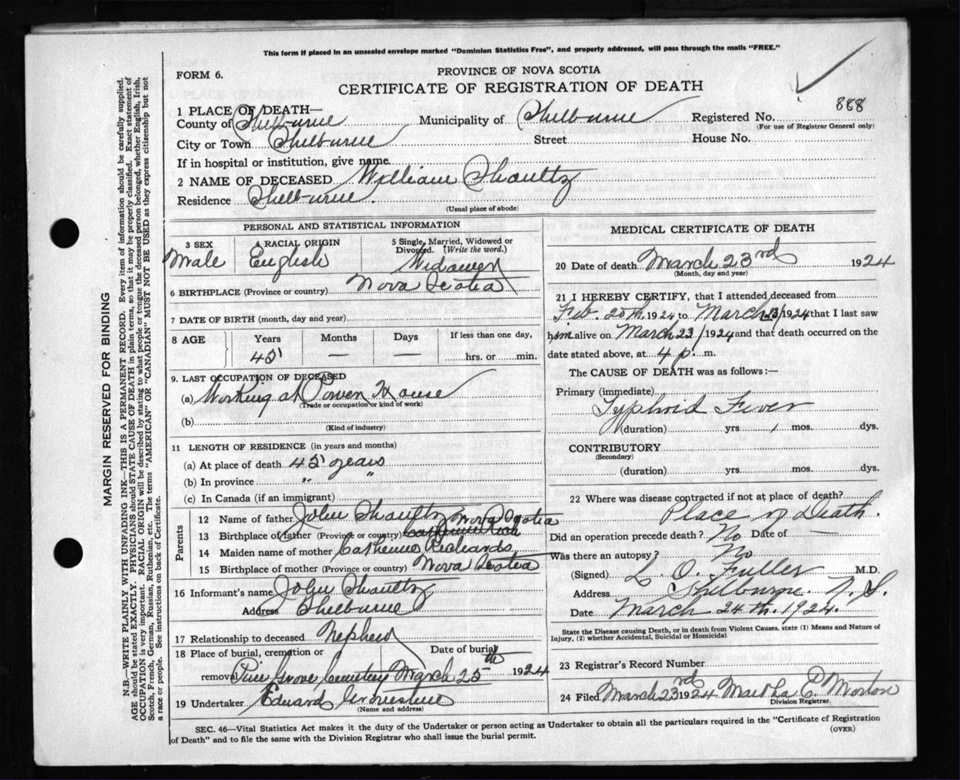 This form if placed in an unsealed envelope marked "Dominion Statistics Free", and properly addressed, will pass through the mails "FREE."
FORM 6.
PROVINCE OF NOVA SCOTIA
CERTIFICATE OF REGISTRATION OF DEATH
888
1 PLACE OF DEATH—
County of Shelburne Municipality of Shelburne Registered No.
(For use of Registrar General only)
City or Town Shelburne Street House No.
If in hospital or institution, give name
2 NAME OF DECEASED William Shaultz
Residence Shelburne.
(Usual place of abode)
MARGIN RESERVED FOR BINDING
N.B.—WRITE PLAINLY WITH UNFADING INK—THIS IS A PERMANENT RECORD. Every item of information should be carefully supplied.
AGE should be stated EXACTLY. PHYSICIANS should STATE CAUSE OF DEATH in plain terms, so that it may be properly classified. Exact statement of
OCCUPATION is very important. RACIAL ORIGIN will be described by stating to what people or tongue the deceased person belonged, whether English, Irish,
Scotch, French, German, Russian, Ruthenian, etc. The terms "AMERICAN" or "CANADIAN" MUST NOT BE USED as they express citizenship but not
a race or people. See instructions on back of Certificate.
PERSONAL AND STATISTICAL INFORMATION
3 SEX 4 RACIAL ORIGIN 5 Single, Married, Widowed or
Divorced. (Write the word.)
Male English Widower
6 BIRTHPLACE (Province or country) Nova Scotia
7 DATE OF BIRTH (month, day and year)
8 AGE Years Months Days If less than one day,
45 — — hrs. or min.
9. LAST OCCUPATION OF DECEASED
(a) Working at Power House
(Trade or occupation or kind of work)
(b)
(Kind of industry)
11 LENGTH OF RESIDENCE (in years and months)
(a) At place of death 45 years
(b) In province "
(c) In Canada (if an immigrant)
Parents
12 Name of father John Shaultz
13 Birthplace of father (Province or country) Nova Scotia
14 Maiden name of mother Catherine Richards
15 Birthplace of mother (Province or country) Nova Scotia
16 Informant's name John Shaultz
Address Shelburne
17 Relationship to deceased Nephew
18 Place of burial, cremation or Date of burial
removal Pine Grove Cemetery March 25th 1924
19 Undertaker Edward
(Name and address)
MEDICAL CERTIFICATE OF DEATH
20 Date of death March 23rd 1924
(Month, day and year)
21 I HEREBY CERTIFY, that I attended deceased from
Feb. 20th 1924 to March 23/1924 that I last saw
him alive on March 23/1924 and that death occurred on
date stated above, at 4 p. m.
The CAUSE OF DEATH was as follows:—
Primary (immediate)
Typhoid Fever
(duration) yrs. 1 mos. dys.
CONTRIBUTORY
(Secondary)
(duration) yrs. mos. dys.
22 Where was disease contracted if not at place of death?
Place of Death.
Did an operation precede death? No Date of
Was there an autopsy? No
(Signed) L. O. Fuller M.D.
Address Shelburne N.S.
Date March 24th. 1924.
State the Disease causing Death, or in death from Violent Causes, state (1) Means and Nature of
Injury, (2) whether Accidental, Suicidal or Homicidal
23 Registrar's Record Number
24 Filed March 23rd 1924 Martha C Morton
Division Registrar.
SEC. 46—Vital Statistics Act makes it the duty of the Undertaker or person acting as Undertaker to obtain all the particulars required in the "Certificate of Registration
of Death" and to file the same with the Division Registrar who shall issue the burial permit.
(OVER)